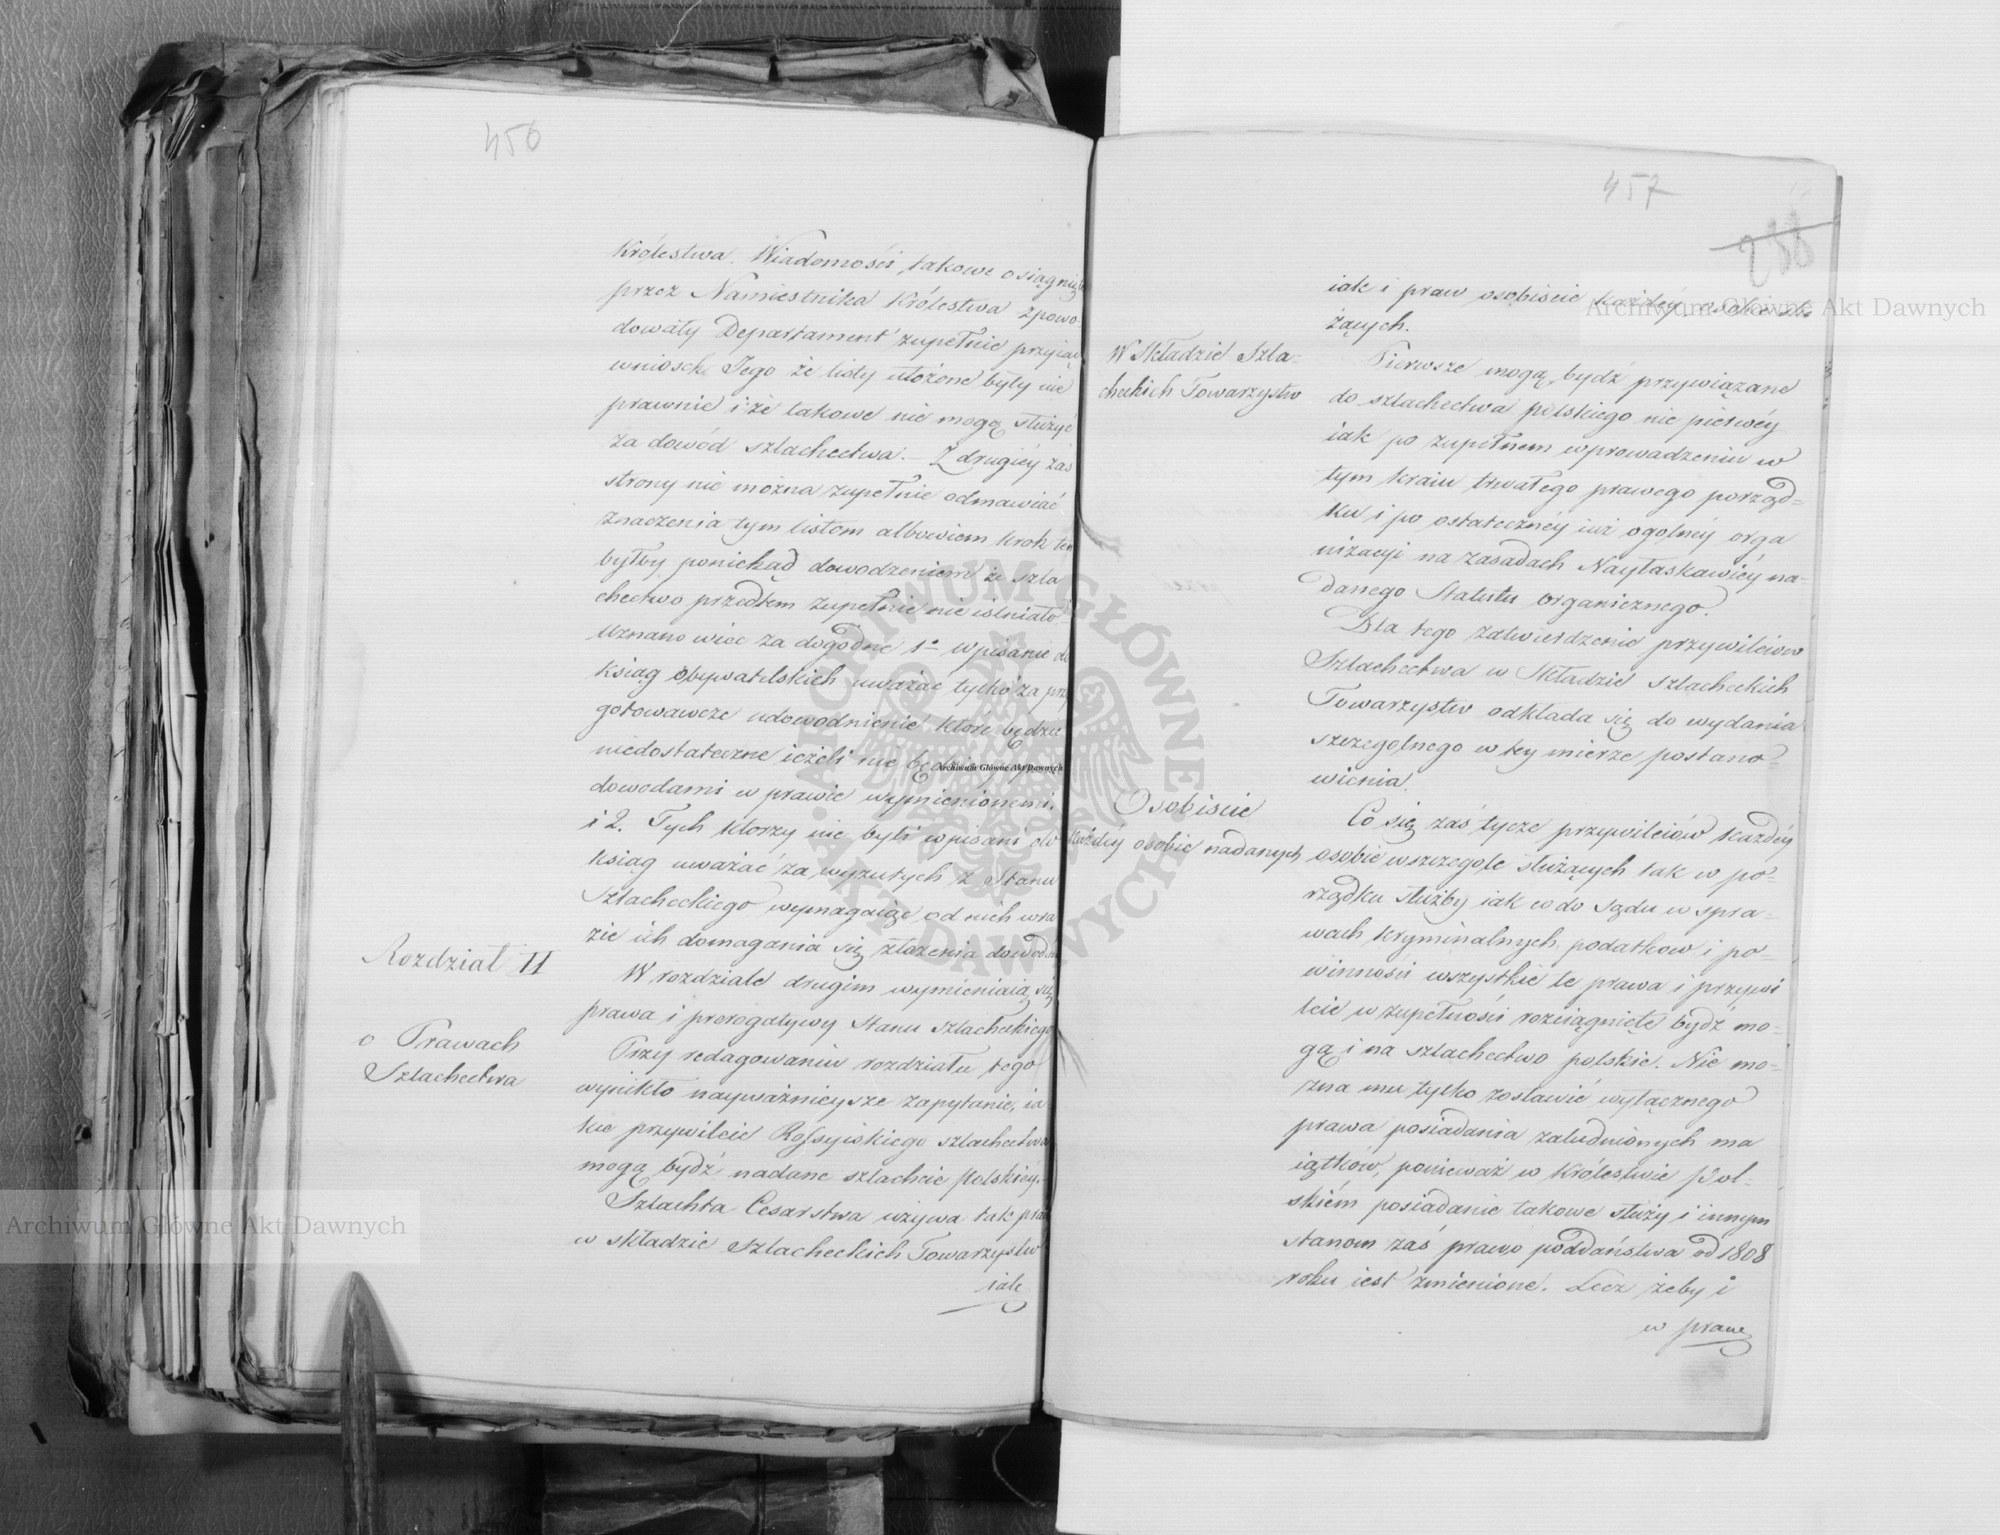 456
Królestwa. Wiadomości takowe osiągnięte
przez Namiestnika Królestwa spowo-
dowały Departament zupełnie przyjąć
wniosek Jego że listy ułożone były nie
prawnie i że takowe nie mogą służyć
za dowód szlachectwa. – Z drugiéy zaś
strony nie można zupełnie odmawiać
znaczenia tym listom albowiem krok ten
byłby poniekąd dowodzeniem że szla
chectwo przedtem zupełnie nie istniało.
Uznano więc za dogodne 1° wpisanie do
ksiąg obywatelskich uważać tylko za przy
gotowawcze udowodnienie które będzie
niedostateczne ieżeli nie będzie
dowodami w prawie wymienionemi.
i 2. Tych którzy nie byli wpisani do
ksiąg uważać za wyzutych z Stanu
Szlacheckiego wymagaiąc od nich w ra
zie ich domagania się złożenia dowodów
Rozdział II
W rozdziale drugim wymieniaią się
prawa i prerogatywy Stanu szlacheckiego
o Prawach
Szlachectwa
Przy redagowaniu rozdziału tego
wynikło nayważnieysze zapytanie, ia
kie przywileie Rossyiskiego szlachectwa
mogą bydź nadane szlachcie Polskiéy.
Szlachta Cesarstwa używa tak praw
w składzie Szlacheckich Towarzystw
iak
457
288
iak i praw osobiście każdéy osobie słu
żących.
W Składzie Szla-
checkich Towarzystw
Pierwsze mogą bydź przywiązane
do szlachectwa polskiego nie pierwéy
iak po zupełnem wprowadzeniu w
tym kraiu trwałego prawego porząd-
ku i po ostatecznéy iuż ogolnéy orga
nizacyi na zasadach Nayłaskawiéy na-
danego Statutu organicznego.
Dla tego zatwierdzenie przywileiów
Szlachectwa w Składzie szlacheckich
Towarzystw odkłada się do wydania
szczegolnego w tey mierze postano-
wienia.
Osobiście
każdéy osobie nadanych
Co się zaś tycze przywileiów każdéy
osobie w szczegole służących tak w po-
rządku służby iak co do sądu w spra-
wach kryminalnych, podatkow i po-
winności wszystkie te prawa i przywi
leie w zupełności rozciągnięte bydź mo-
gą i na szlachectwo polskie. Nie mo-
żna mu tylko zostawić wyłącznego
prawa posiadania zaludnionych ma
iątków, ponieważ w Królestwie Pol-
skiém posiadanie takowe służy i innym
stanom zaś prawo poddaństwa od 1808
roku iest zmienione. Lecz żeby i
w prawe
Archiwum Główne Akt Dawnych
Archiwum Główne Akt Dawnych
Archiwum Główne Akt Dawnych
ARCHIWUM GŁÓWNE AKT DAWNYCH